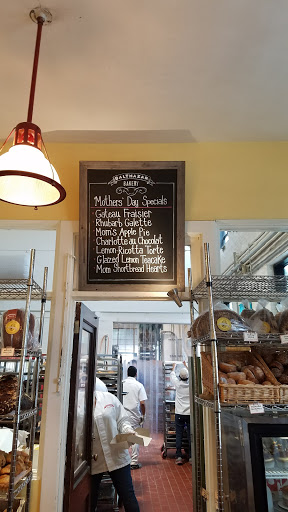 BALTHAZAR
BAKERY
Mothers' Day Specials
Gateau Fraisier
Rhubarb Galette
Mom's Apple Pie
Charlotte au Chocolat
Lemon-Ricotta Torte
Glazed Lemon Teacake
Mom Shortbread Hearts